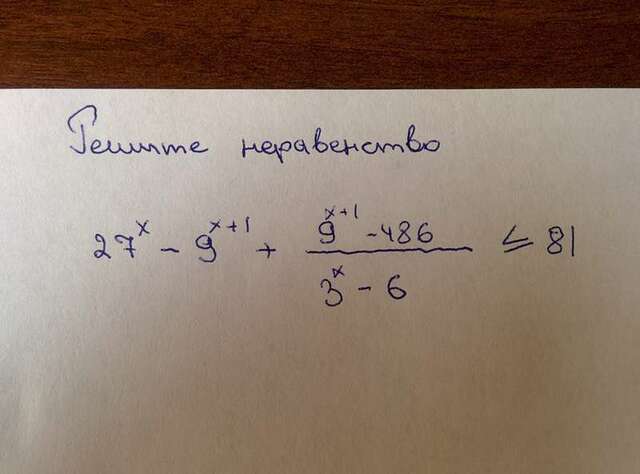 Решите неравенство
27^x - 9^{x+1} + \frac{9^{x+1} - 486}{3^x - 6} ≤ 81